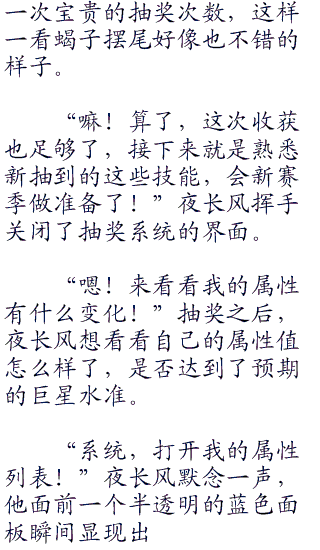 一次宝贵的抽奖次数，这样
一看蝎子摆尾好像也不错的
样子。
“嘛！算了，这次收获
也足够了，接下来就是熟悉
新抽到的这些技能，会新赛
季做准备了！”夜长风挥手
关闭了抽奖系统的界面。
“嗯！来看看我的属性
有什么变化！”抽奖之后，
夜长风想看看自己的属性值
怎么样了，是否达到了预期
的巨星水准。
“系统，打开我的属性
列表！”夜长风默念一声，
他面前一个半透明的蓝色面
板瞬间显现出